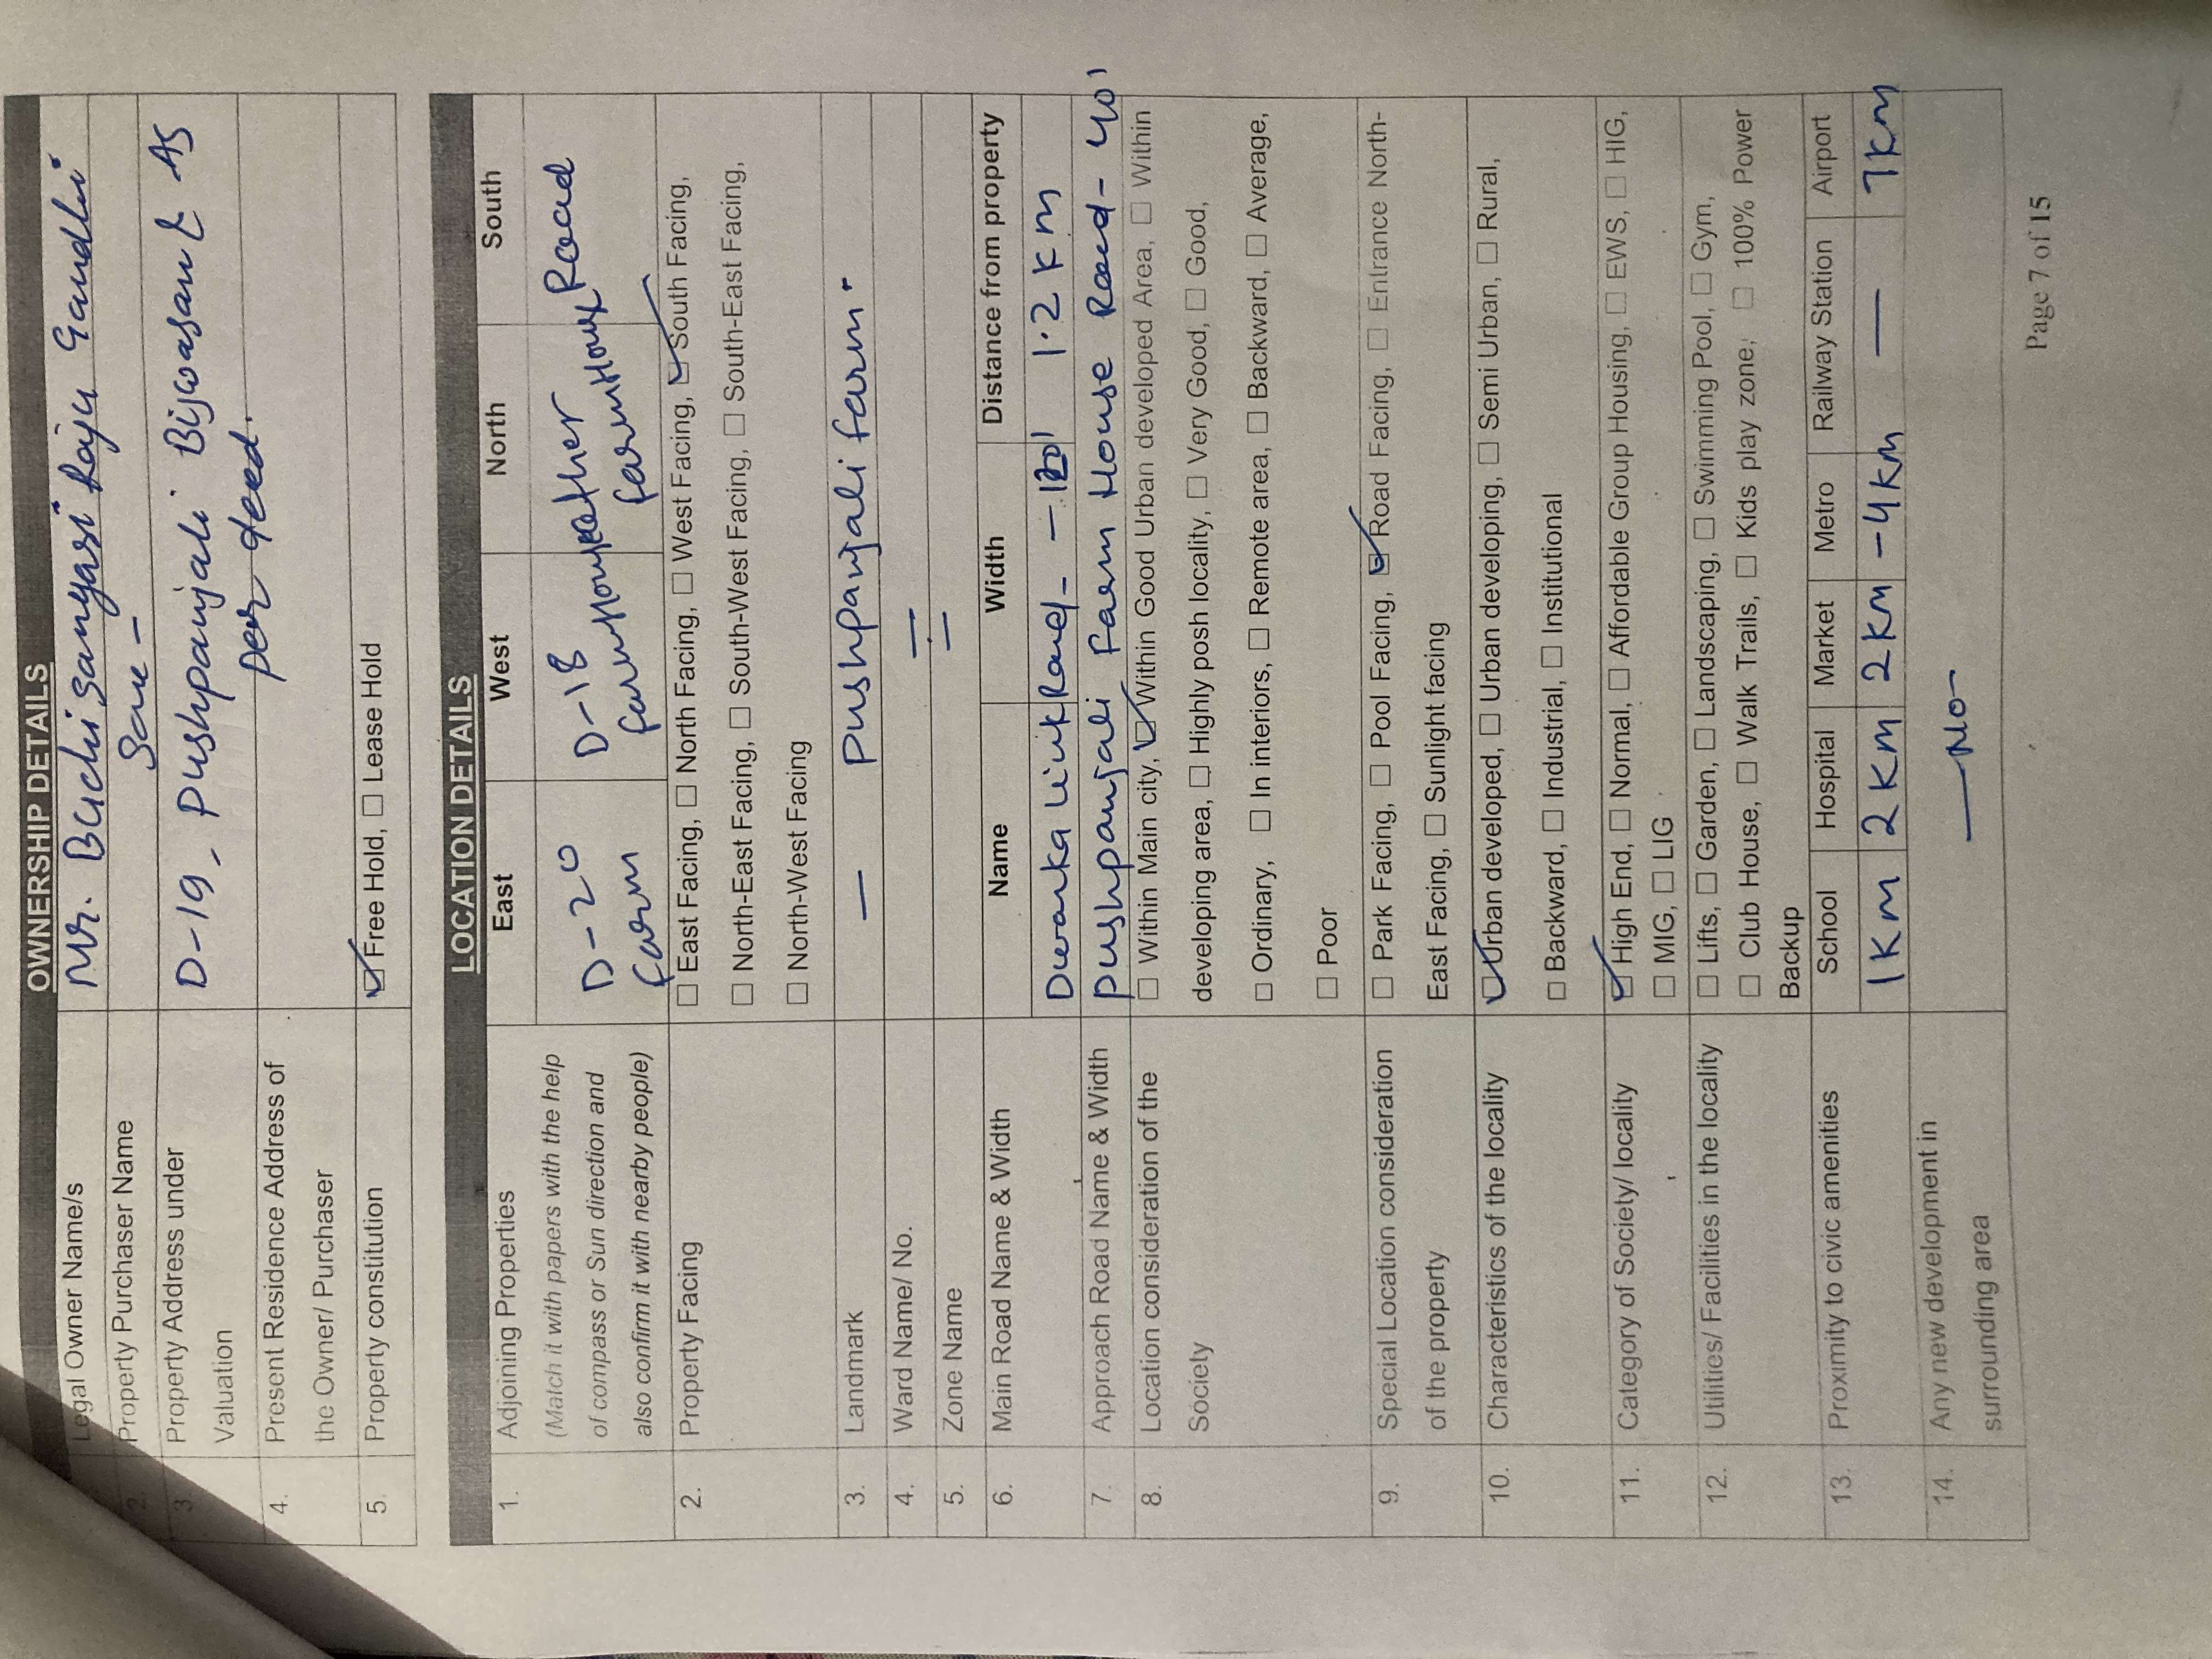 OWNERSHIP DETAILS
Legal Owner Name/s Mr. Buchi sanyasi Raju Gandhi
2. Property Purchaser Name Same -
3. Property Address under D-19, Pushpanjali Bijwasan & As
Valuation per deed.
4. Present Residence Address of
the Owner/ Purchaser
5. Property constitution ☑ Free Hold, ☐ Lease Hold
LOCATION DETAILS
1. Adjoining Properties East West North South
(Match it with papers with the help D-20 D-18 other Road
of compass or Sun direction and farm farmHouse farmHouse
also confirm it with nearby people)
2. Property Facing ☐ East Facing, ☐ North Facing, ☐ West Facing, ☑ South Facing,
☐ North-East Facing, ☐ South-West Facing, ☐ South-East Facing,
☐ North-West Facing
3. Landmark — Pushpanjali farm.
4. Ward Name/ No. —
5. Zone Name —
6. Main Road Name & Width Name Width Distance from property
Dwarka Link Road - 1.2 Km
7. Approach Road Name & Width Pushpanjali Farm House Road - 40'
8. Location consideration of the ☐ Within Main city, ☑ Within Good Urban developed Area, ☐ Within
Society developing area, ☐ Highly posh locality, ☐ Very Good, ☐ Good,
☐ Ordinary, ☐ In interiors, ☐ Remote area, ☐ Backward, ☐ Average,
☐ Poor
9. Special Location consideration ☐ Park Facing, ☐ Pool Facing, ☑ Road Facing, ☐ Entrance North-
of the property East Facing, ☐ Sunlight facing
10. Characteristics of the locality ☑ Urban developed, ☐ Urban developing, ☐ Semi Urban, ☐ Rural,
☐ Backward, ☐ Industrial, ☐ Institutional
11. Category of Society/ locality ☑ High End, ☐ Normal, ☐ Affordable Group Housing, ☐ EWS, ☐ HIG,
☐ MIG, ☐ LIG
12. Utilities/ Facilities in the locality ☐ Lifts, ☐ Garden, ☐ Landscaping, ☐ Swimming Pool, ☐ Gym,
☐ Club House, ☐ Walk Trails, ☐ Kids play zone, ☐ 100% Power
Backup
13. Proximity to civic amenities School Hospital Market Metro Railway Station Airport
1 Km 2 Km 2 Km - 4 Km — 7 Km
14. Any new development in — No -
surrounding area
Page 7 of 15